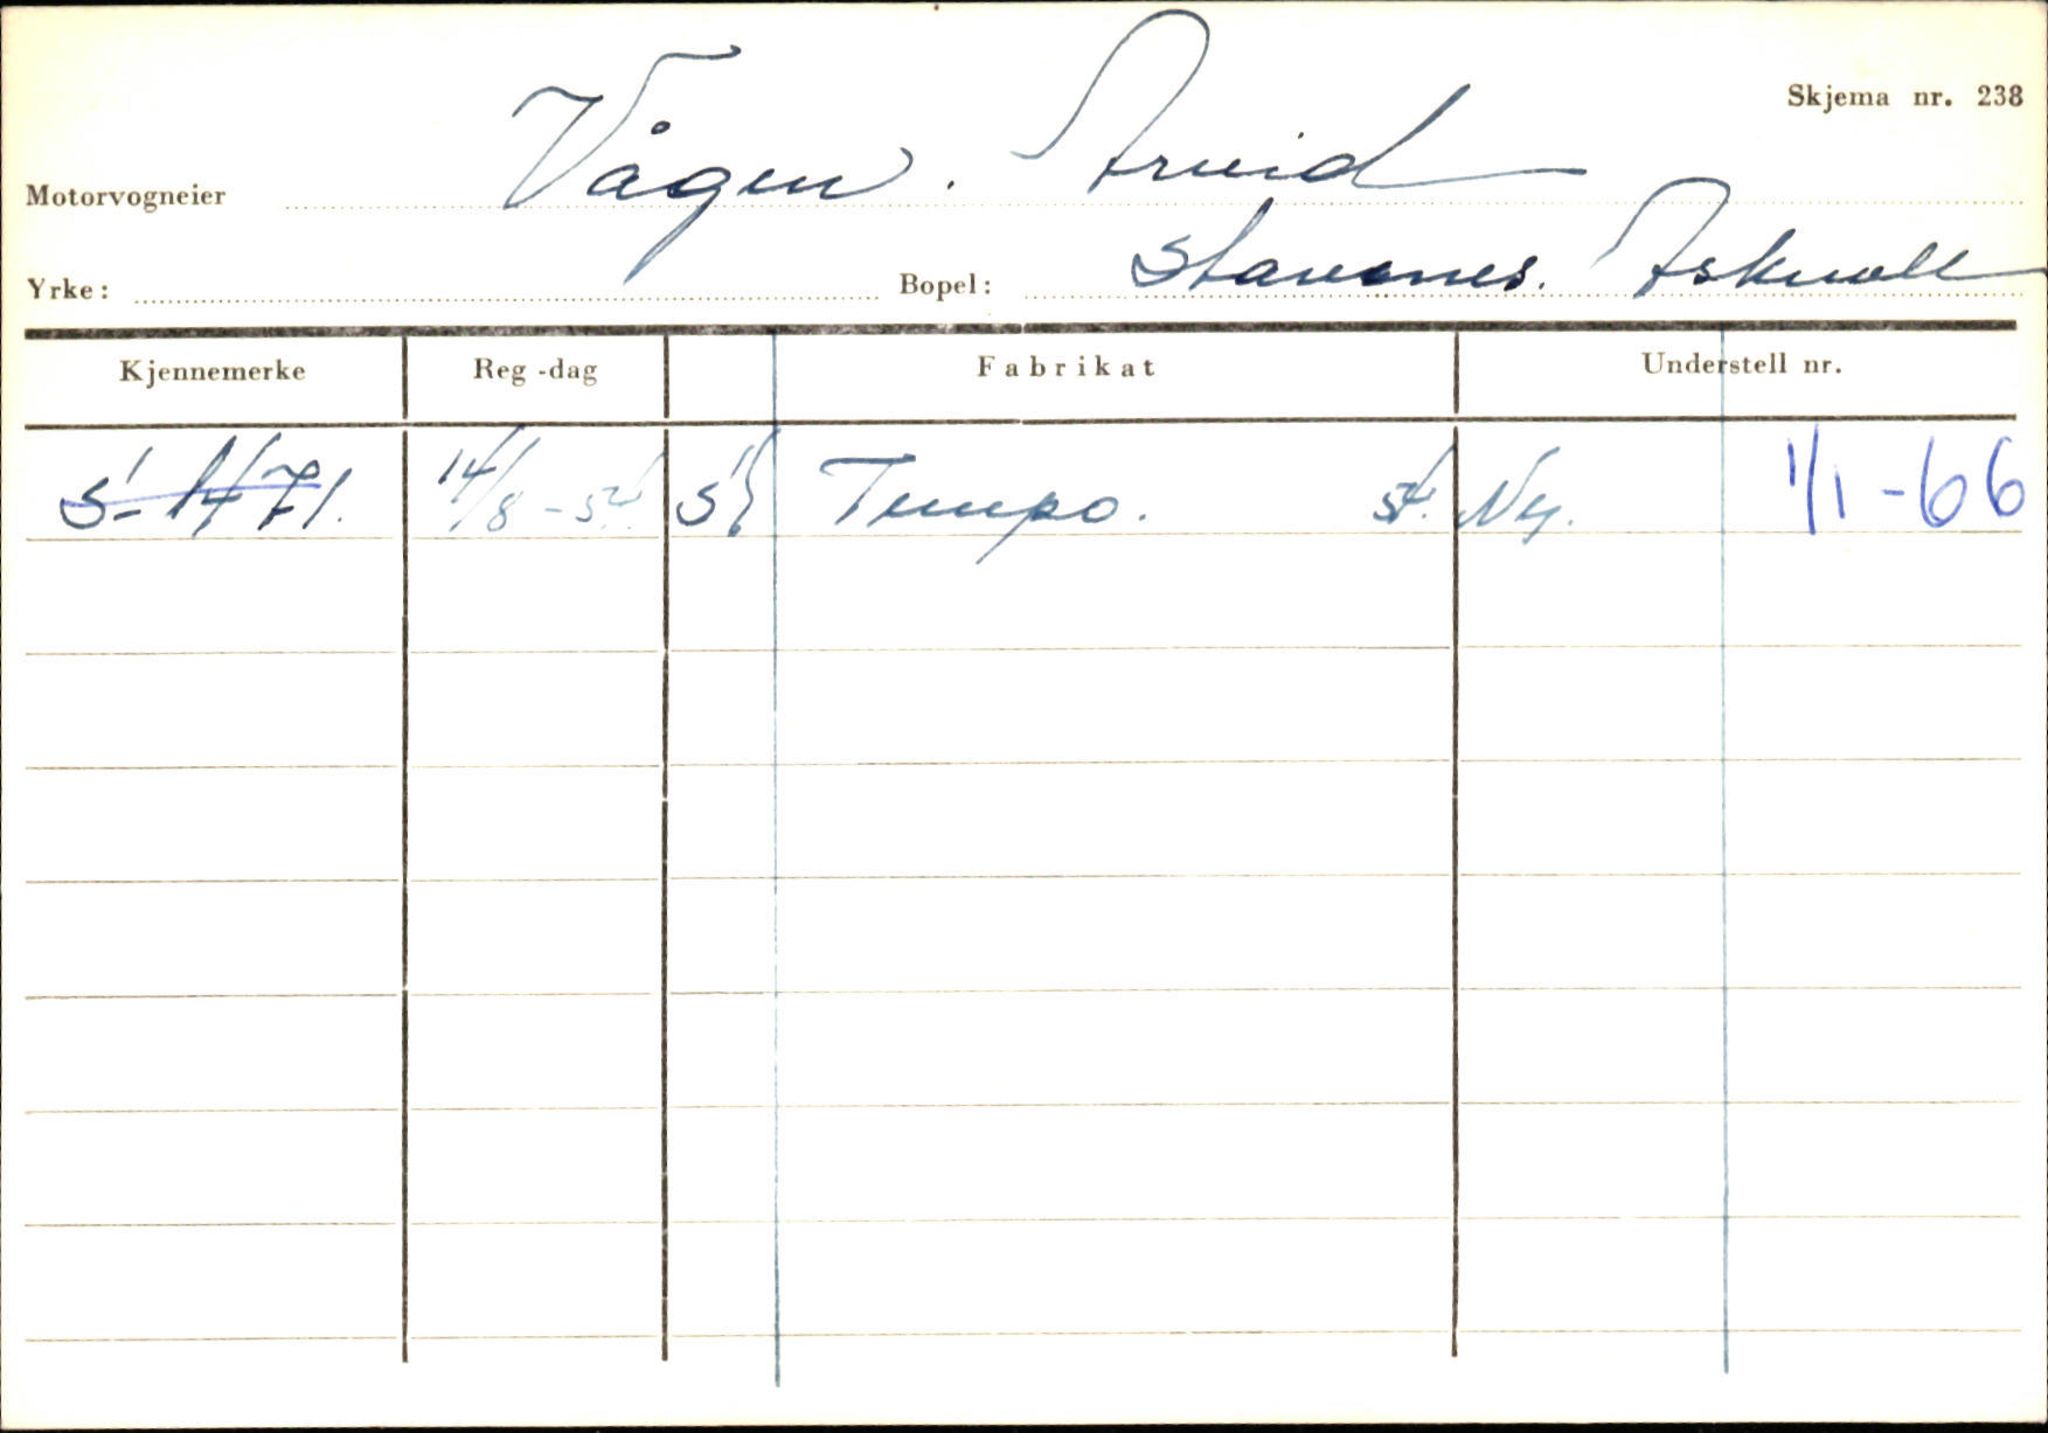 Skjema nr. 238
Motorvogneier Vågen. Arvid
Yrke: Bopel: Stavenes. Askvoll
Kjennemerke Reg-dag Fabrikat Understell nr.
S-1471. 14/8-54 Tempo. 54. Ny. 1/1-66